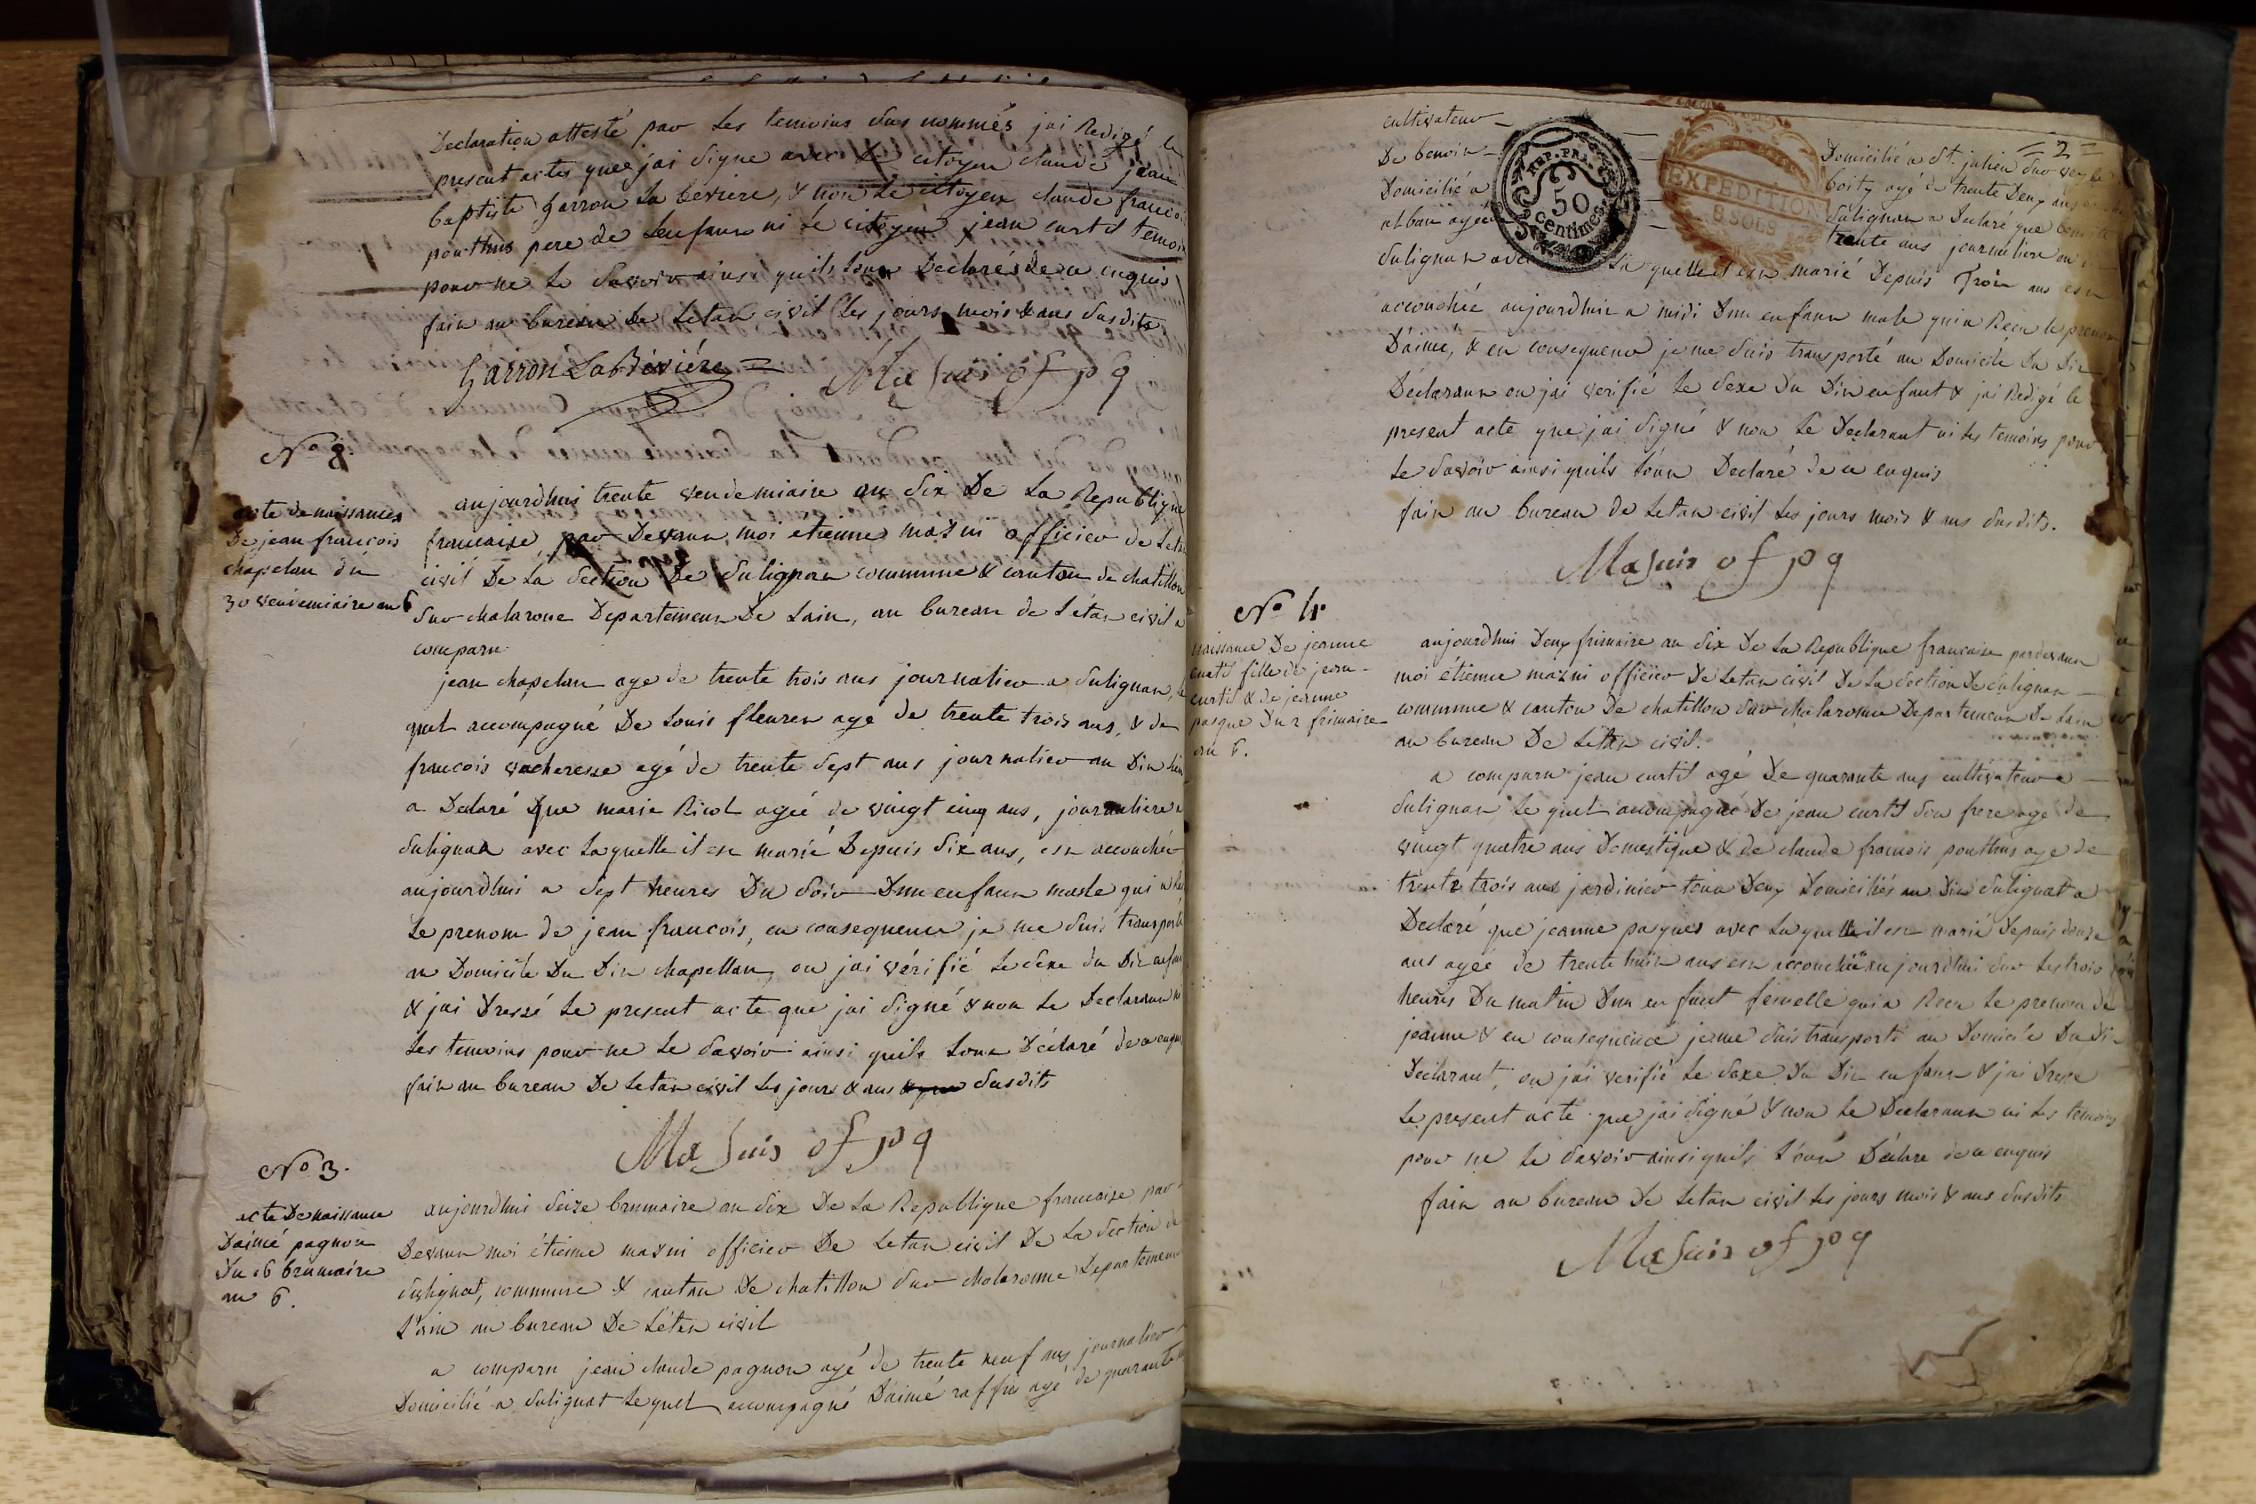 Declaration attesté par les temoins sus nommés jai Redigé le
present actes que jai signe avec le citoyen claude jean
baptiste garron la beviere, & non le citoyen claude francois
pouthus pere de lenfant ni le citoyen jean curtil temoin
pour ne le savoir ainsi quils lont Declarés de ce enquis
fait au bureau de letat civil les jours mois & ans susdits
Garron LaBéviére
Masuis of pq
No 8
acte de naissance
De jean francois
chapelan du
30 vendemiaire an 6
aujourdhuis trente vendemiaire an six De La Republique
francaise, par Devant moi etienne mazni officier de letat
civil De la section De sulignat commune & canton de chatillon
sur chalarone Departement De Lain, au bureau de létat civil a
comparu
jean chapelan age de trente trois ans journalier a sulignat, le
quel accompagné De Louis fleuret agé de trente trois ans, & de
francois vacheresse agé de trente sept ans journalier au Dit lieu
a Declaré Que marie Ricol agée de vingt cinq ans, journaliere a
sulignat avec laquelle il est marié Depuis six ans, est accouchée
aujourdhui a sept heures Du soir Dun enfant masle qui a
le prenom de jean francois, en consequence je me suis transporté
au Domicile Du Dit chapellan, ou jai vérifié le sexe du Dit enfant
& jai Dressé le present acte que jai signé & non le Declarant ni
les temoins pour ne le savoir ainsi quils lont Déclaré de ce enquis
fait au bureau De letat civil les jours & ans susdits
Masuis of pq
No 3.
acte De naissance
Daimé pagnon
Du 16 brumaire
an 6.
aujourdhui seize brumaire an six De La Republique francaise par
Devant moi étienne mazni officier De letat civil De La section de
sulignat, commune & canton De chatillon sur chalaronne Departement
Lain au bureau De Létat civil
a comparu jean claude pagnon agé de trente neuf ans journalier
Domicilié a sulignat lequel accompagné Daimé raffin agé de quarante
= 2 =
cultivateur Domicilié a St. julien sur veyle
De benoit boity agé de trente Deux ans
Domicilié a sulignat a Declaré que
alban agée trente ans journaliere
REP. FRA.
50
Centimes
EXPEDITION
8 SOLS
sulignat avec la quelle il est marié Depuis Trois ans est
accouchée aujourdhui a midi Dun enfant male qui a Recu le prenom
Daimé, & en consequence je me suis transporté au Domicile Du Dit
Déclarant ou jai verifié le sexe du Dit enfant & jai Redigé le
present acte que jai signé & non le Declarant ni les temoins pour
le savoir ainsi quils lont Declaré de ce enquis
fait au bureau de letat civil les jours mois & ans susdits.
Masuis of pq
No 4
naissance De jeanne
curtil fille de jean
curtil & de jeanne
pasque Du 2 frimaire
an 6.
aujourdhui Deux frimaire an six De La Republique francaise pardevant
moi étienne mazni officier De Letat civil De La section De sulignat
commune & canton De chatillon sur chalaronne Departement De Lain
au bureau De Letat civil.
a comparu jean curtil agé De quarante ans cultivateur a
sulignat Le quel accompagné De jean curtil son frere age de
vingt quatre ans Domestique & de claude francois pouthus age de
trente trois ans jardinier tous Deux Domiciliés au Dit sulignat a
Declaré que jeanne pasques avec laquelle il est marié Depuis douze
ans agée de trente huit ans est accouchée aujourdhui sur les trois
heures Du matin Dun enfant femelle qui a Recu le prenom de
jeanne & en consequence je me suis transporté au Domicile Du Dit
Declarant, ou jai verifié le sexe Du Dit enfant & jai Dressé
le present acte que jai signé & non le Declarant ni les temoins
pour ne le savoir ainsi quils lont Déclare de ce enquis
fait au bureau De letat civil les jours mois & ans susdits
Masuis of pq